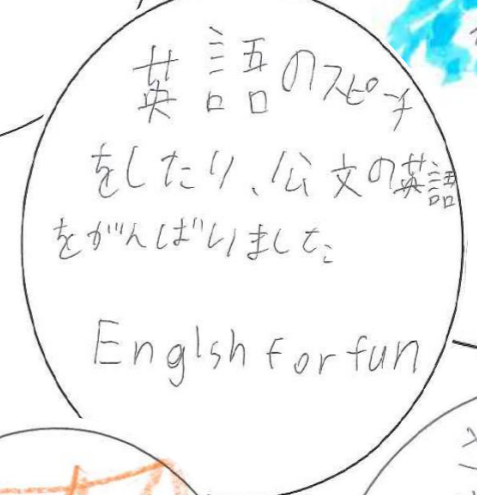 英語のスピーチ
をしたり、公文の英語
をがんばりました。
Englsh for fun